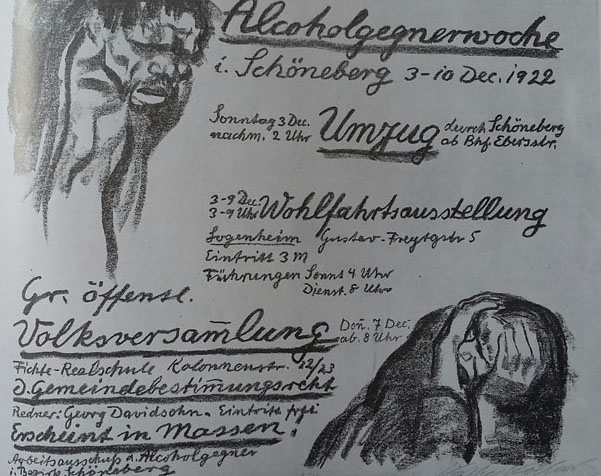 Alcoholgegnerwoche
i. Schöneberg 3-10 Dec. 1922
Sonntag 3 Dec.
nachm. 2 Uhr
Umzug
durch Schöneberg
ab Bhf. Ebersstr.
3-9 Dec.
3-9 Uhr
Wohlfahrtsausstellung
Logenheim Gustav-Freytgstr 5
Eintritt 3 M
Führungen Sonnt 4 Uhr
Dienst. 8 Uhr
Gr. öffentl.
Volksversam̄lung
Don. 7 Dec.
ab. 8 Uhr
Fichte-Realschule Kolonnenstr. 22/23
d. Gemeindebestim̄ungsrecht
Redner: Georg Davidsohn. Eintritt frei
Erscheint in Massen!
Arbeitsausschuß d. Alcoholgegner
i. Bezirk Schöneberg